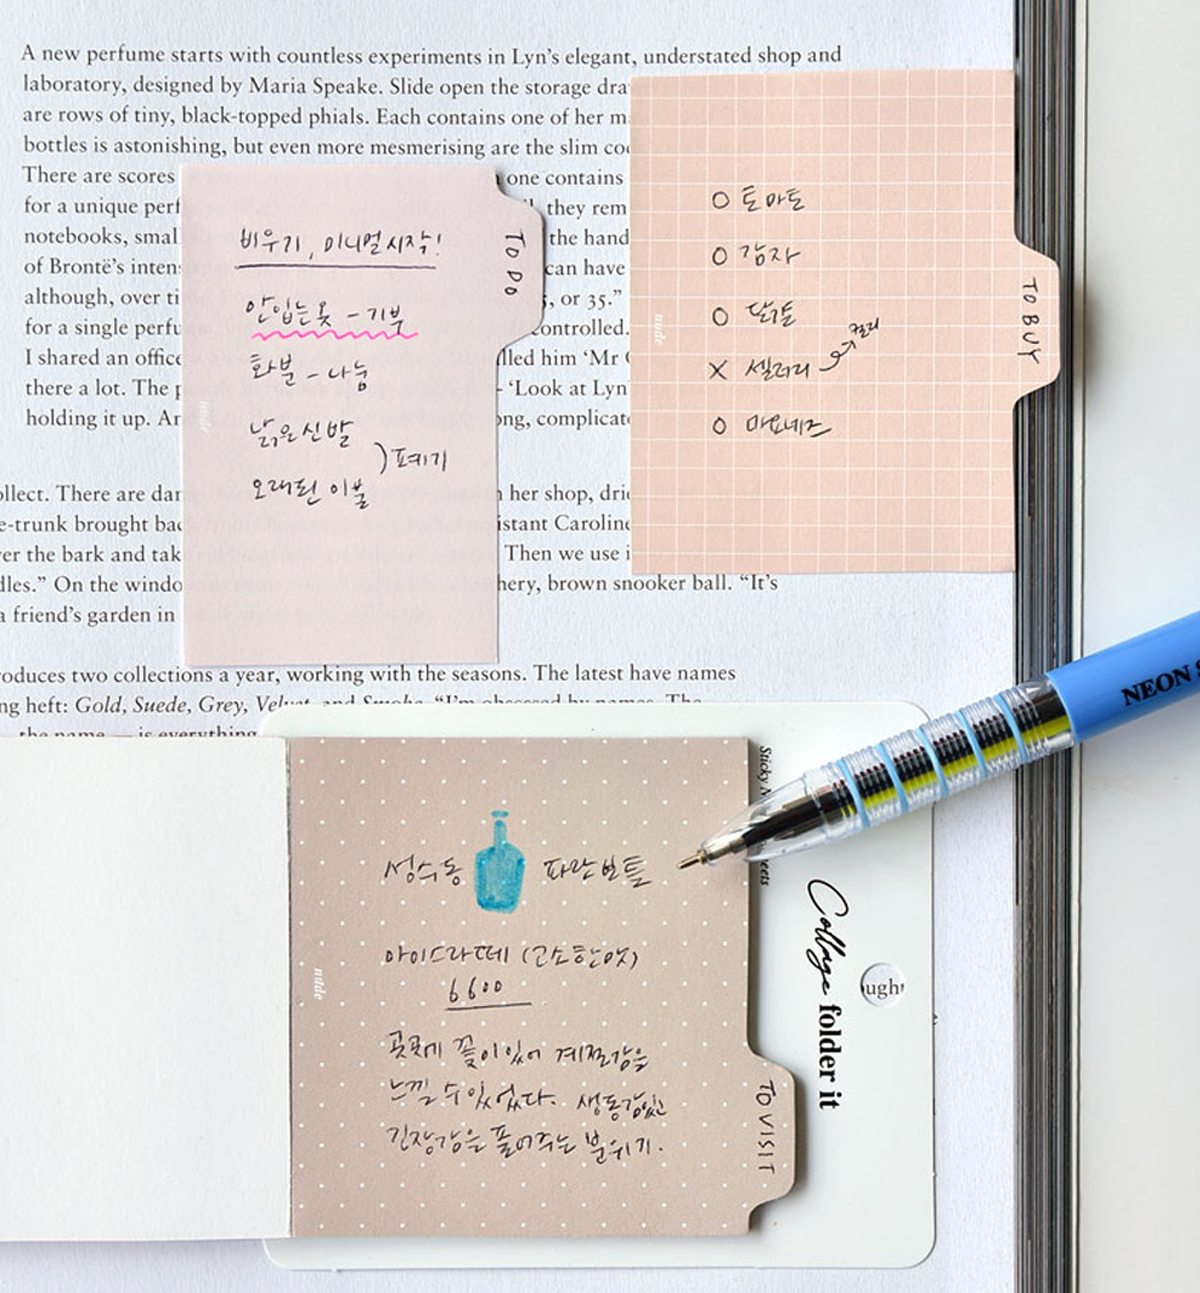 A new perfume starts with countless experiments in Lyn's elegant, understated shop and
laboratory, designed by Maria Speake. Slide open the storage dra
are rows of tiny, black-topped phials. Each contains one of her m
bottles is astonishing, but even more mesmerising are the slim co
There are scores one contains
for a unique perf they rem
notebooks, smal the hand
of Brontë's intens can have
although, over ti , or 35."
for a single perfu controlled.
I shared an office lled him 'Mr
there a lot. The p - 'Look at Lyn'
holding it up. An ong, complicate
ollect. There are dar her shop, drie
e-trunk brought bac istant Caroline
er the bark and tak Then we use i
dles." On the windo hery, brown snooker ball. "It's
a friend's garden in
roduces two collections a year, working with the seasons. The latest have names
ng heft: Gold, Suede, Grey, Velvet and Smoke. "I'm obsessed by names. The
the name — is everything
TO DO
비우기, 미니멀시작!
안입는옷 - 기부
화분 - 나눔
낡은신발
오래된 이불
)폐기
nude
TO BUY
O 토마토
O 감자
O 달걀
X 셀러리 → 컬리
O 마요네즈
nude
성수동 파란보틀
아이스라떼 (고소한맛)
6600
곳곳에 꽃이있어 계절감을
느낄 수 있었다. 생동감있고
긴장감을 풀어주는 분위기.
nude
TO VISIT
Sticky N eets
Collage folder it
ugh
NEON S